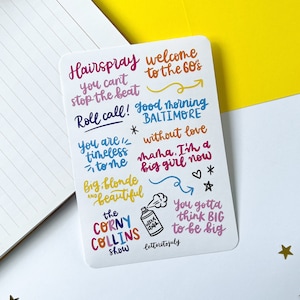 Hairspray
welcome
to the 60's
you can't
stop the beat
Roll call!
Good morning
BALTIMORE
you are
timeless
to me
without love
mama, I'm a
big girl now
Big, blonde
and beautiful
the
CORNY
COLLINS
show
You gotta
think BIG
to be big